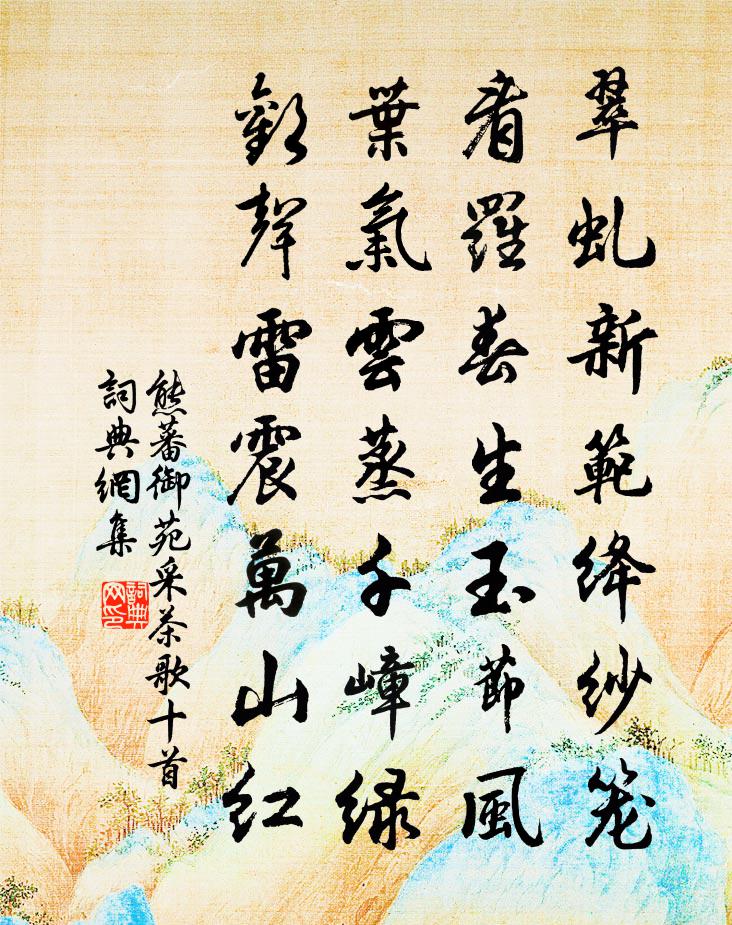 翠虬新範绛纱笼
看羅春生玉節風
葉氣雲蒸千嶂绿
歡聲雷震萬山红
熊蕃御苑采茶歌十首
詞典網集
詞典